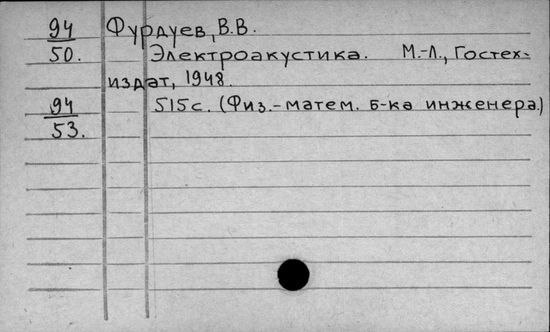 94 Фурдуев, В.В.
50. Электроакустика. М.-Л., Гостех-
издат, 1948.
94 515с. (Физ.-матем. б-ка инженера.)
53.